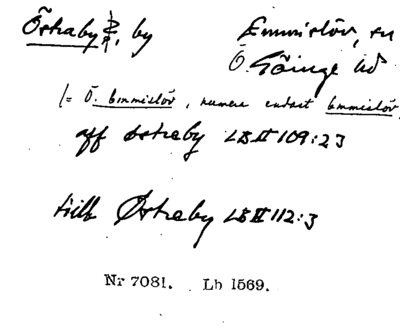 Östraby, by Emmislöv, sn
Ö. Göinge hd
(= Ö. Emmislöv, numera endast Emmislöv,
aff østraby LB II 109:23
till Østraby LB II 112:3
Nr 7081. Lb 1569.